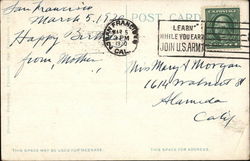 San Francisco
March 5, 1920
POST CARD
Happy Birth
from, Mother
SAN FRANCISCO
MAR 5
3 PM
1920
CAL.
LEARN
WHILE YOU EARN
JOIN U.S. ARMY
Miss Mary I Morgan
1614 Walnut St
Alameda
Calif
THIS SPACE MAY BE USED FOR MESSAGE.
THIS SPACE FOR ADDRESS.